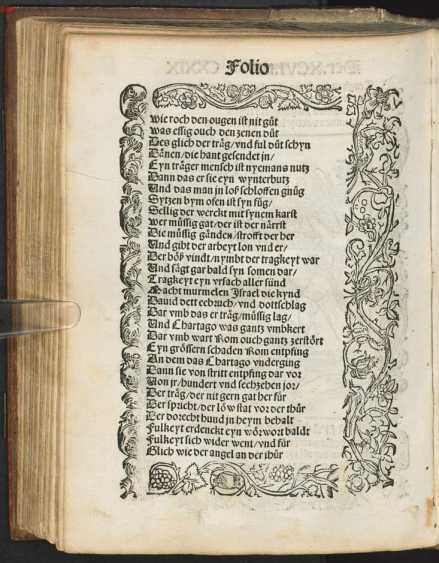 Folio
wie roch den ougen ist nit gůt
was essig ouch den zenen důt
Des glich der träg/vnd ful důt schyn
Dänen/die hant gesendet jn/
Eyn träger mensch ist nyemans nutz
Dann das er sie eyn wynterbutz
Und das man jn loß schloffen gnůg
Sytzen bym ofen ist syn fůg/
Sellig der werckt mit synem karst
wer müssig gat/der ist der närrst
Die müssig gänden/strofft der her
Und gibt der arbeyt lon vnd er/
Der böß vindt/nymbt der tragkeyt war
Und sägt gar bald syn somen dar/
Tragkeyt eyn vrsach aller sünd
Macht murmelen Israel die kynd
Dauid dett eebruch/vnd dottschlag
Dar vmb das er träg/müssig lag/
Und Chartago was gantz vmbkert
Dar vmb wart Rom ouch gantz zerstört
Eyn grössern schaden Rom entpfing
An dem das Chartago vndergung
Dann sie von stritt entpfing dar vor
Von jr/hundert vnd sechzehen jor/
Der träg/der nit gern gat her für
Der spricht/der löw stat vor der thür
Der dorecht hund jn heym behalt
Fulkeyt erdenckt eyn wörwort baldt
Fulkeyt sich wider went/vnd für
Glich wie der angel an der thür